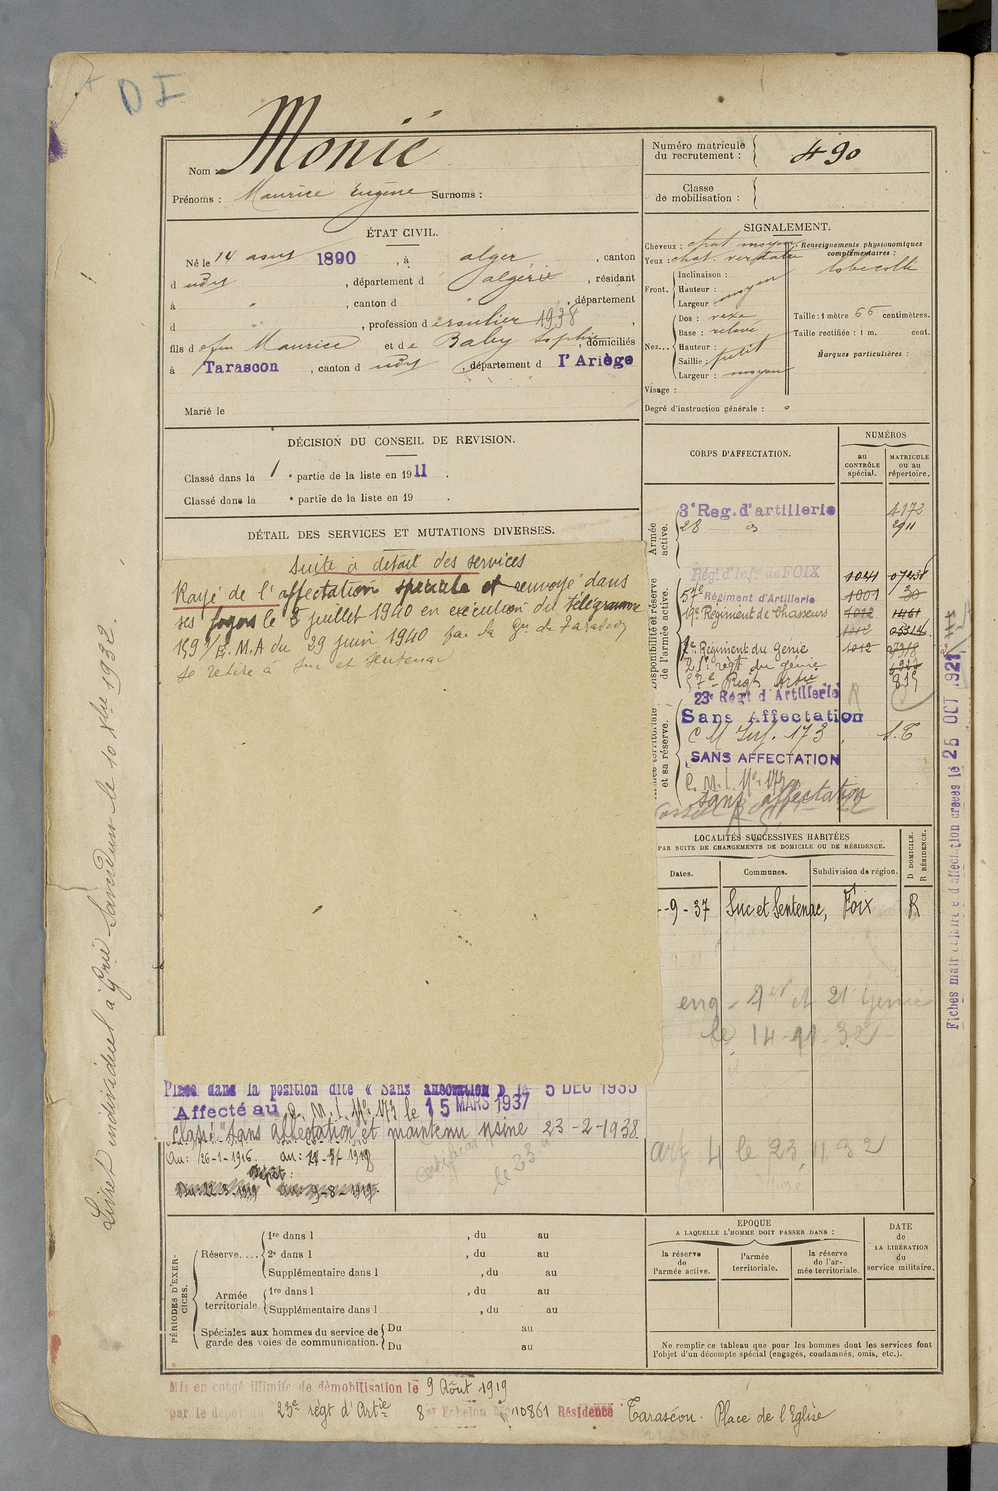 D I
Nom : Monié
Prénoms : Maurice Eugène Surnoms :
Numéro matricule
du recrutement : 490
Classe
de mobilisation :
ÉTAT CIVIL.
Né le 14 aous 1890, à alger, canton
d udys, département d algérie, résidant
à " , canton d " , département
d " , profession d 1938,
fils de feu Maurice et de Baby Sophie, domiciliés
à Tarascon, canton d udys, département d l'Ariège
Marié le
SIGNALEMENT.
Cheveux : chat. moyen
Yeux : chat.
Renseignements physionomiques
complémentaires :
Front.
Inclinaison :
Hauteur : moyen
Largeur :
Nez...
Dos : vexe
Base : relevé
Hauteur :
Saillie : petit
Largeur : moyen
Visage :
Taille : 1 mètre 66 centimètres.
Taille rectifiée : 1 m. cent.
Marques particulières :
Degré d'instruction générale : °
DÉCISION DU CONSEIL DE REVISION.
Classé dans la 1 e partie de la liste en 1911.
Classé dans la e partie de la liste en 19 .
DÉTAIL DES SERVICES ET MUTATIONS DIVERSES.
Suite à détail des services
Rayé de l'affectation spéciale et renvoyé dans
ses foyers le 8 juillet 1940 en exécution du télégramme
159/E.M.A du 29 juin 1940 par la Gie de Tarascon
se retire à Suc et Sentenac
CORPS D'AFFECTATION.
NUMÉROS
au
CONTRÔLE
spécial.
MATRICULE
ou au
répertoire.
Armée
active.
3e Reg. d'artillerie 4172
28 2911
Disponibilité et réserve
de l'armée active.
Régt d'Infie de FOIX 1044
57e Régiment d'Artillerie 1001 30
19e Régiment de Chasseurs 1012 1461
1012
1e Régiment du Génie 1012
21e régt du génie
57e Regt Artie 819
23e Régt d'Artillerie
et sa réserve.
Sans Affectation
C M Inf. 173 S.T
SANS AFFECTATION
C. M. I. No 173
Sans affectation
LOCALITÉS SUCCESSIVES HABITÉES
PAR SUITE DE CHANGEMENTS DE DOMICILE OU DE RÉSIDENCE.
Dates. Communes. Subdivision de région. D DOMICILE. R RÉSIDENCE.
-9-37 Suc et Sentenac, Foix R
eng. 1er et 21 Génie
le 14-11-32
art 4 le 23.11.32
Placé dans la position dite « Sans affectation » le 5 DEC 1935
Affecté au C. M. I. No 173 le 15 MARS 1937
classé "Sans affectation et maintenu usine 23-2-1938.
Au: 26-1-1916. au:
Dépôt :
Du: 22-3-1919 au: 9-8-1919.
le 23
PÉRIODES D'EXERCICES.
Réserve....
1re dans l , du au
2e dans l , du au
Supplémentaire dans l , du au
Armée
territoriale.
1re dans l , du au
Supplémentaire dans l , du au
Spéciales aux hommes du service de
garde des voies de communication.
Du au
Du au
EPOQUE
A LAQUELLE L'HOMME DOIT PASSER DANS :
la réserve
de
l'armée active.
l'armée
territoriale.
la réserve
de l'ar-
mée territoriale.
DATE
de
LA LIBÉRATION
du
service militaire.
Ne remplir ce tableau que pour les hommes dont les services font
l'objet d'un décompte spécial (engagés, condamnés, omis, etc.).
Mis en congé illimité de démobilisation le 9 Août 1919
par le dépôt du 23e régt d'Artie 8e Echelon No 10861 Résidence Tarascon. Place de l'Eglise
Livret individuel à Grie Saverdun le 10 Xbre 1932.
Fiches matriculaire et d'affectation créées le 25 OCT 1921